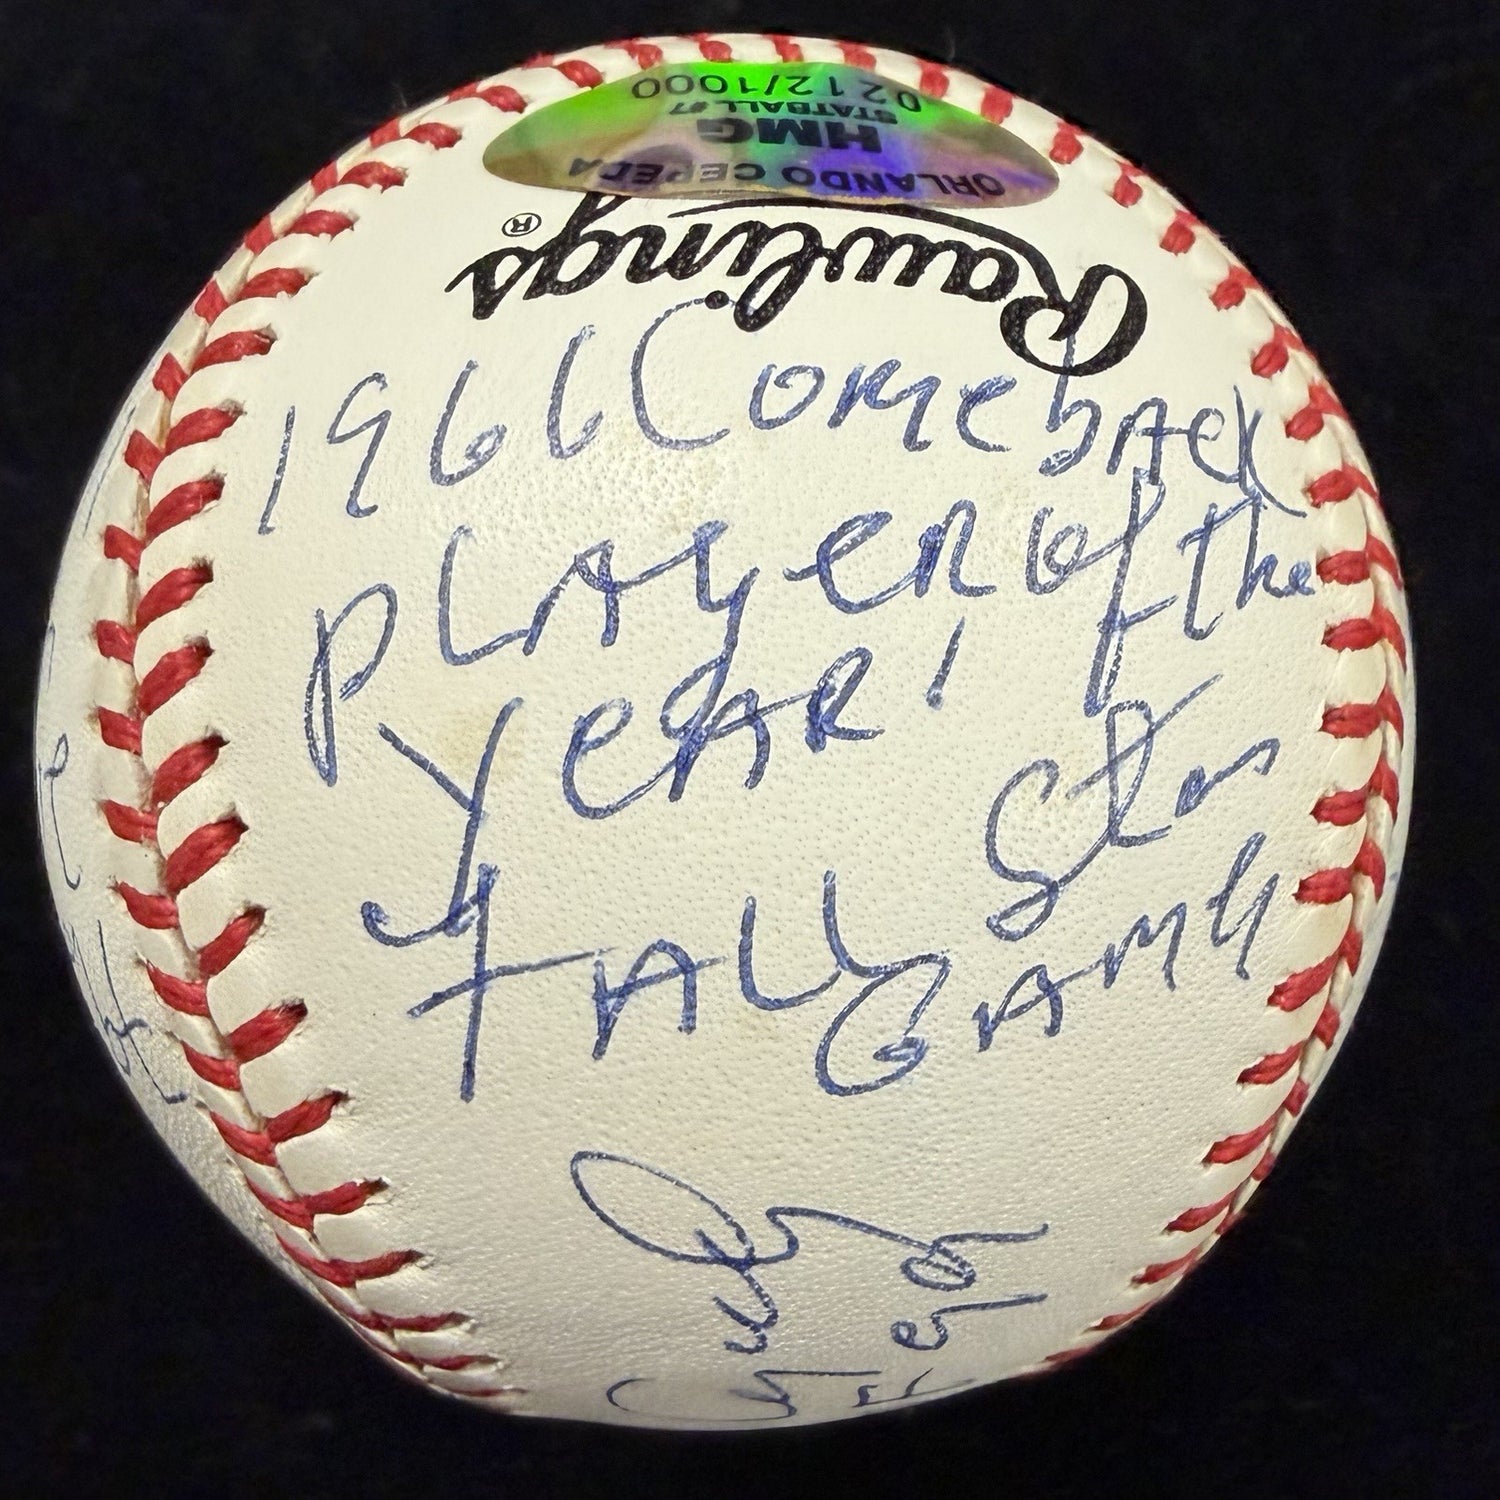 0212/1000
STATBALL #7
HMG
ORLANDO CEPEDA
Rawlings®
1966 Comeback
Player of the
Year!
7 All Star
Game